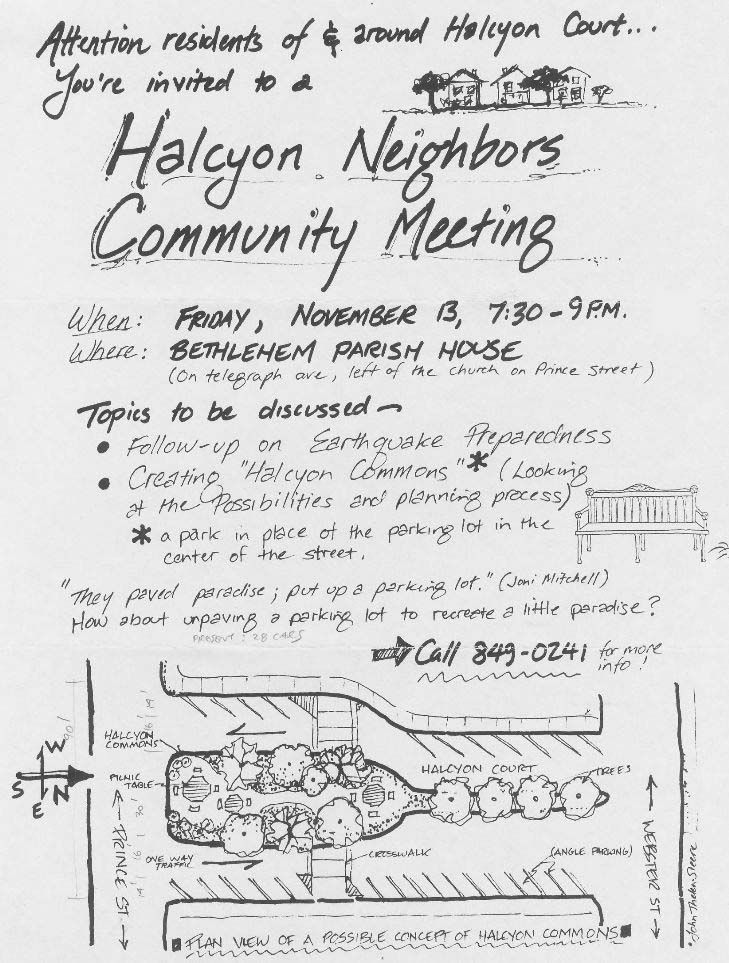 Attention residents of & around Halcyon Court...
You're invited to a
Halcyon Neighbors
Community Meeting
When: FRIDAY, NOVEMBER 13, 7:30-9 P.M.
Where: BETHLEHEM PARISH HOUSE
(On telegraph ave, left of the church on Prince Street)
Topics to be discussed~
• Follow-up on Earthquake Preparedness
• Creating "Halcyon Commons"* (Looking
at the Possibilities and planning process)
* a park in place of the parking lot in the
center of the street.
"They paved paradise; put up a parking lot." (Joni Mitchell)
How about unpaving a parking lot to recreate a little paradise?
PRESENT: 28 CARS
Call 849-0241 for more
info!
HALCYON
COMMONS
PICNIC
TABLE
W
S N
E
90'
16' 19'
30'
19' 16'
← PRINCE ST →
ONE WAY
TRAFFIC
HALCYON COURT
TREES
CROSSWALK
(ANGLE PARKING)
← WEBSTER ST →
PLAN VIEW OF A POSSIBLE CONCEPT OF HALCYON COMMONS